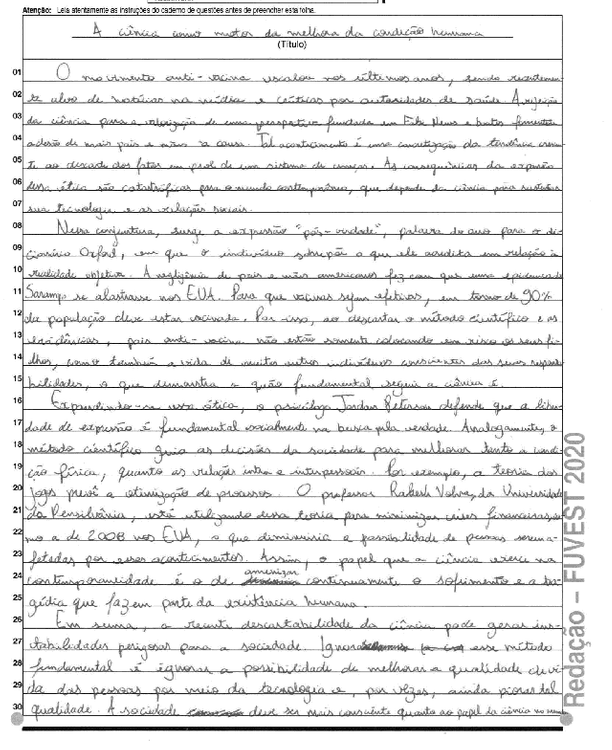 Atenção: Leia atentamente as instruções do caderno de questões antes de preencher esta folha.
A ciência como motor da melhora da condição humana
(Título)
01 O movimento anti-vacina escalou nos últimos anos, sendo recentemen-
02 te alvo de notícias na mídia e críticas por autoridades de saúde. A rejeição
03 da ciência para a valorização de uma perspectiva fundada em Fake News e boatos fomenta a
04 adesão de mais pais e mães à causa. Tal acontecimento é uma concretização da tendência cren-
05 te ao descarte dos fatos em prol de um sistema de crenças. As consequências da expansão
06 dessa ética são catastróficas para o mundo contemporâneo, que depende da ciência para sustentar
07 sua tecnologia e as relações sociais.
08 Nessa conjuntura, surge a expressão "pós-verdade", palavra do ano para o di-
09 cionário Oxford, em que o indivíduo sobrepõe o que ele acredita em relação à
10 realidade objetiva. A negligência de pais e mães americanos fez com que uma epidemia de
11 Sarampo se alastrasse nos EUA. Para que vacinas sejam efetivas, em torno de 90%
12 da população deve estar vacinada. Por isso, ao descartar o método científico e as
13 evidências, pais anti-vacina não estão somente colocando em risco os seus fi-
14 lhos, como também a vida de muitos outros indivíduos conscientes das suas responsa-
15 bilidades, o que demonstra o quão fundamental seguir a ciência é.
16 Expandindo-se essa ética, o psicólogo Jordan Peterson defende que a liber-
17 dade de expressão é fundamental socialmente na busca pela verdade. Analogamente, o
18 método científico guia as decisões da sociedade para melhorar tanto a condi-
19 ção física, quanto as relações intra e interpessoais. Por exemplo, a teoria dos
20 jogos prevê a otimização de processos. O professor Rakesh Vohra, da Universidade
21 da Pensilvânia, está utilizando dessa teoria para minimizar crises financeiras, co-
22 mo a de 2008 nos EUA, o que diminuiria a possibilidade de pessoas serem a-
23 fetadas por esses acontecimentos. Assim, o papel que a ciência exerce na
24 contemporaneidade é o de amenizar continuamente o sofrimento e a tra-
25 gédia que fazem parte da existência humana.
26 Em suma, a recente descartabilidade da ciência pode gerar ins-
27 tabilidades perigosas para a sociedade. Ignorar esse método
28 fundamental é ignorar a possibilidade de melhorar a qualidade de vi-
29 da das pessoas por meio da tecnologia e, por vezes, ainda piorar tal
30 qualidade. A sociedade deve ser mais consciente quanto ao papel da ciência no
Redação – FUVEST 2020